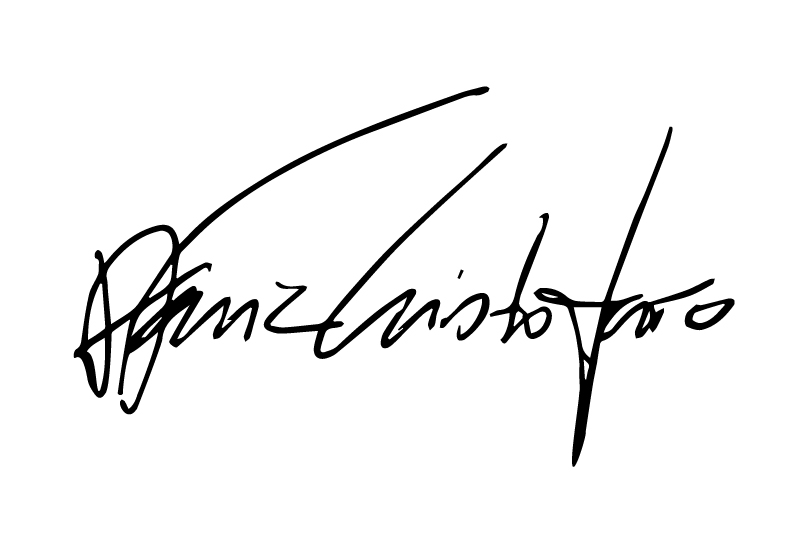 Franz Cristoforo